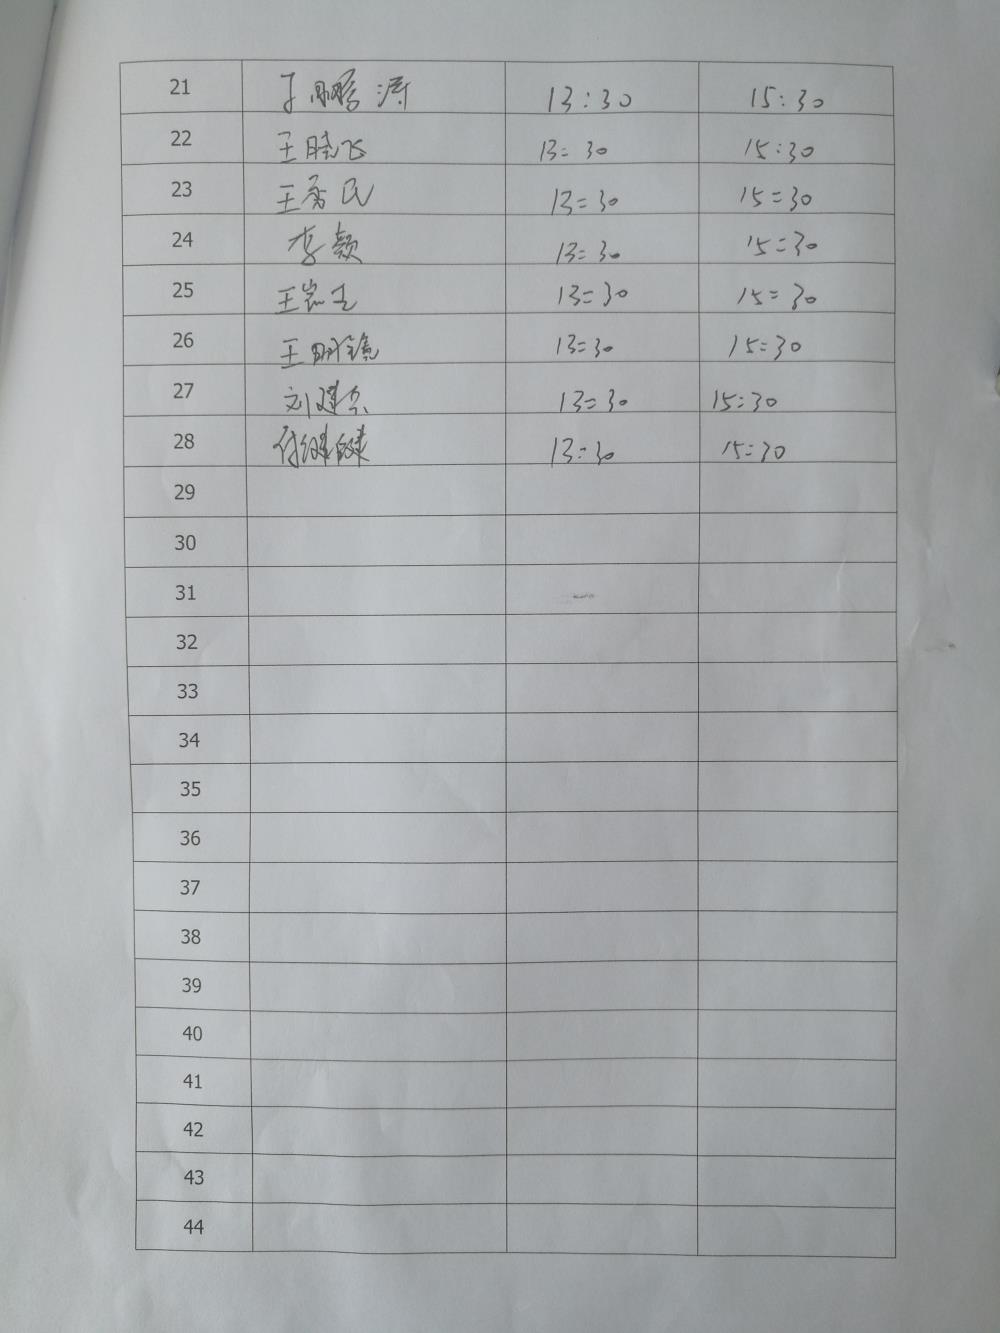 21 于鹏涛 13:30 15:30
22 王晓飞 13:30 15:30
23 王秀民 13:30 15:30
24 李颖 13:30 15:30
25 王崇玉 13:30 15:30
26 王明镜 13:30 15:30
27 刘建宗 13:30 15:30
28 付健健 13:30 15:30
29
30
31
32
33
34
35
36
37
38
39
40
41
42
43
44